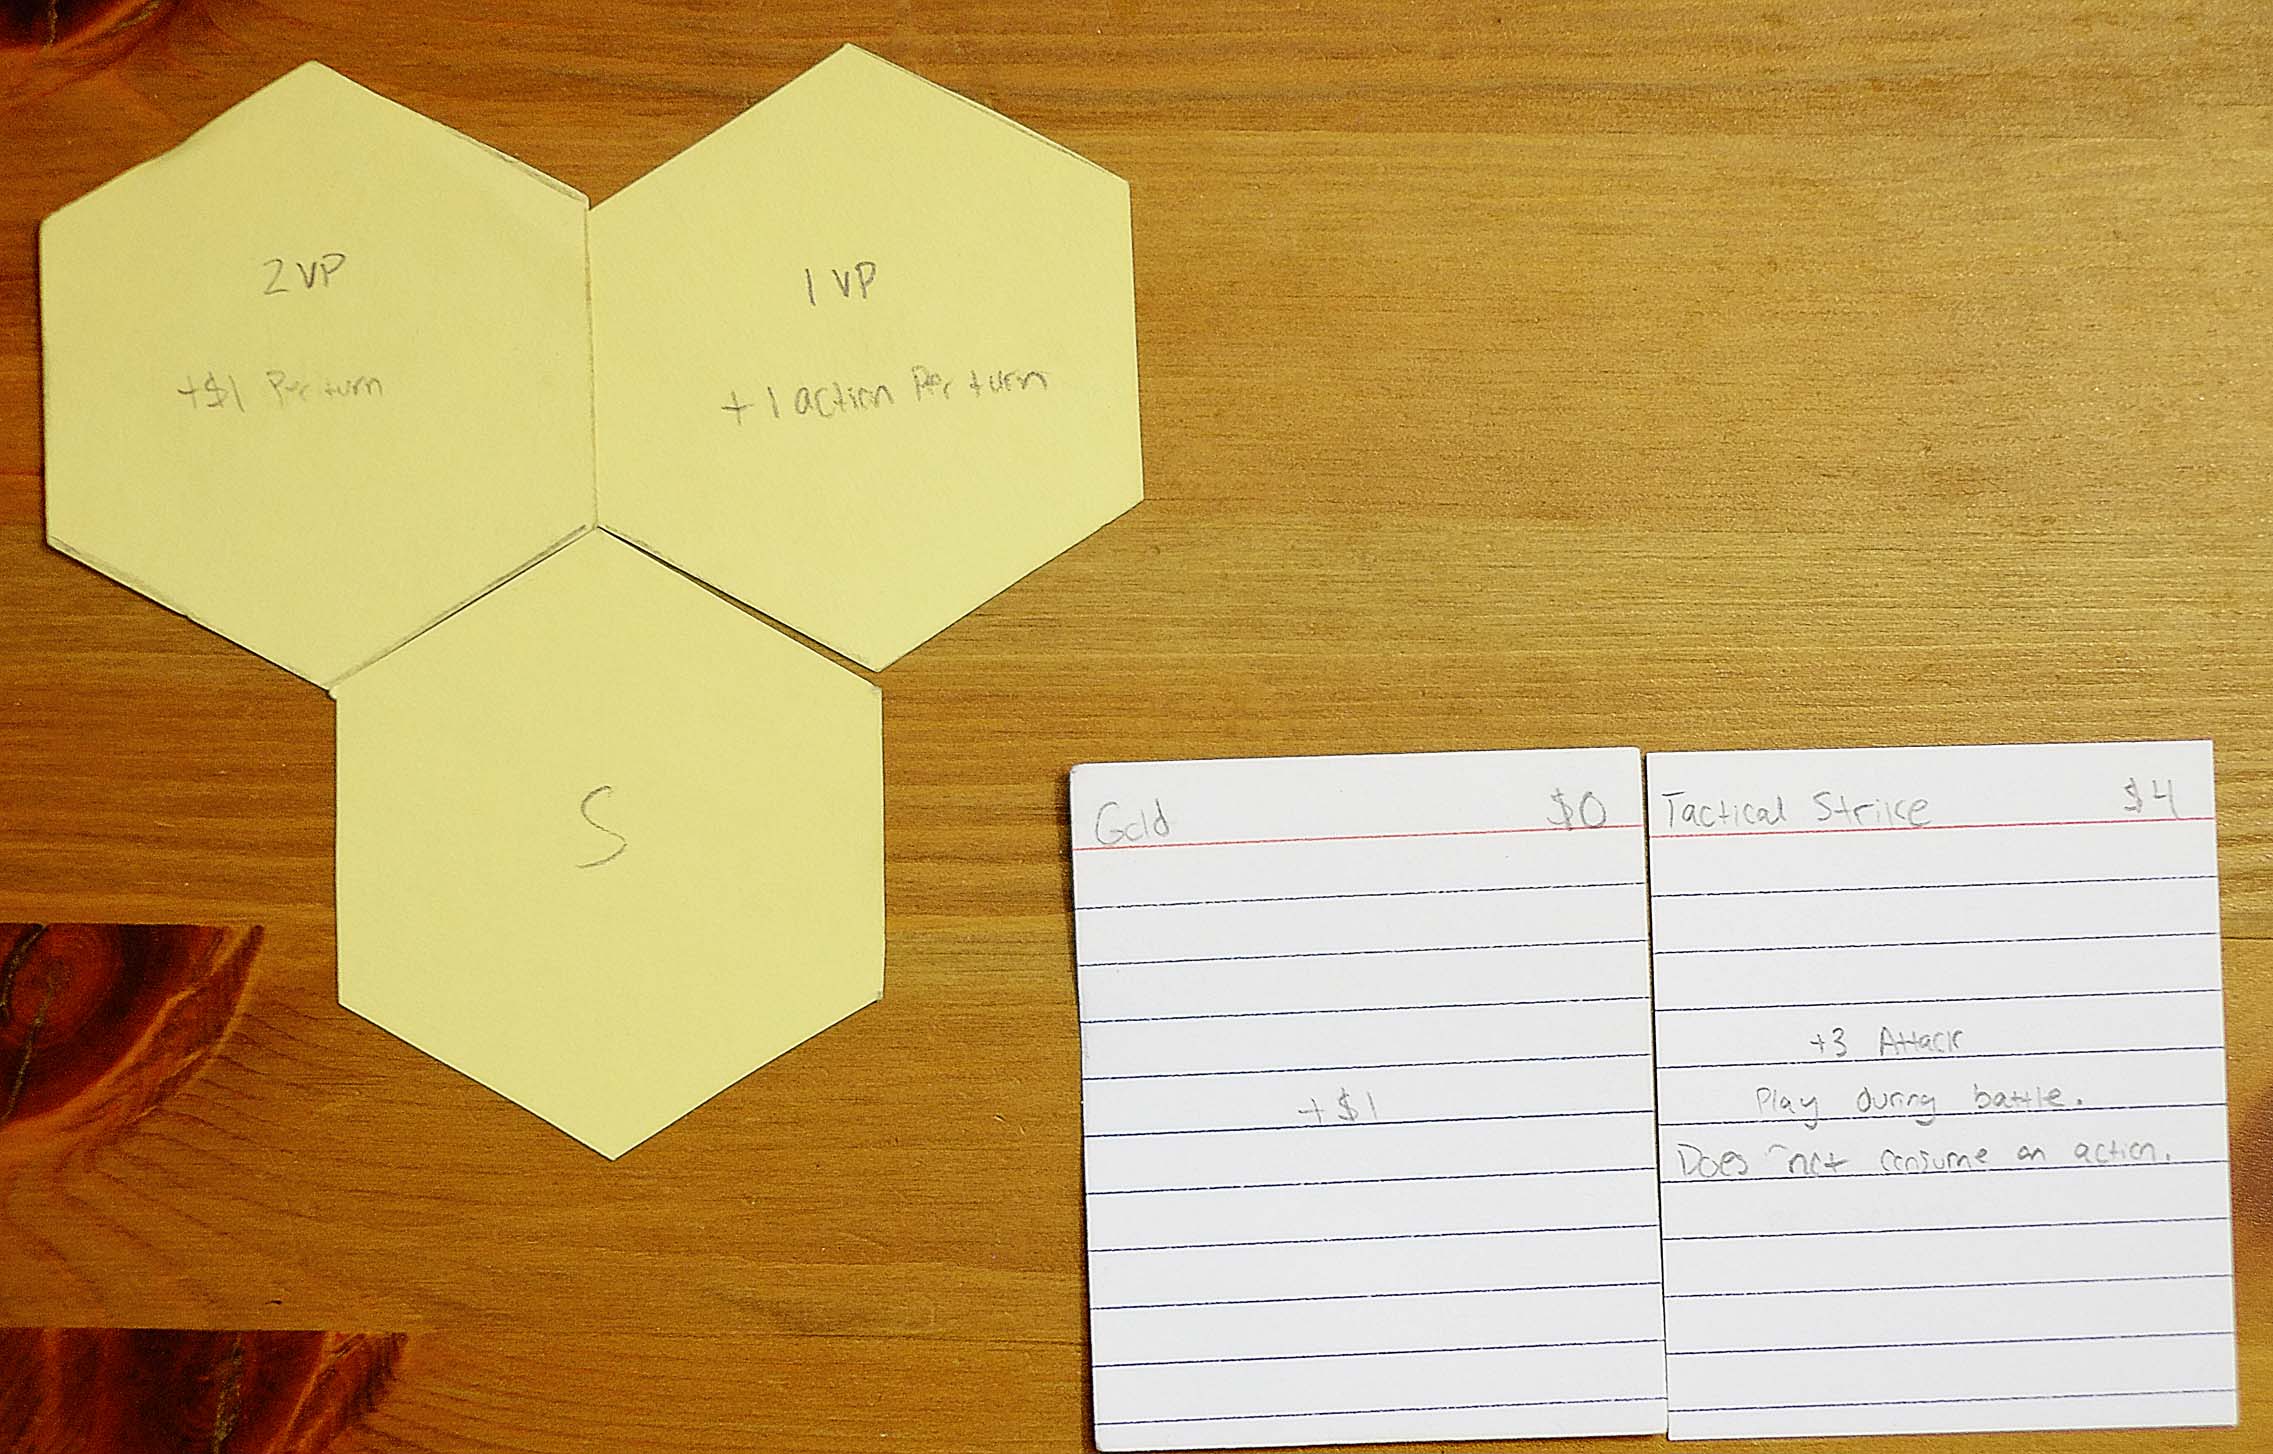 2 VP
+$1 Per turn
1 VP
+1 action Per turn
S
Gold $0
+$1
Tactical Strike $4
+3 Attack
Play during battle.
Does not consume an action.